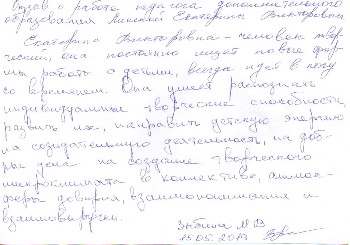 Отзыв о работе педагога дополнительного
образования Екатерины Викторовны
Екатерина Викторовна - человек твор-
ческий, она постоянно ищет новые фор-
мы работы с детьми, всегда идёт в ногу
со временем. Она умеет распознать
индивидуальные творческие способности,
развить их, направить детскую энергию
на созидательную деятельность, на доб-
рые дела на создание творческого
микроклимата в коллективе, атмос-
феры доверия, взаимопонимания и
взаимовыручки.
15.05.2013